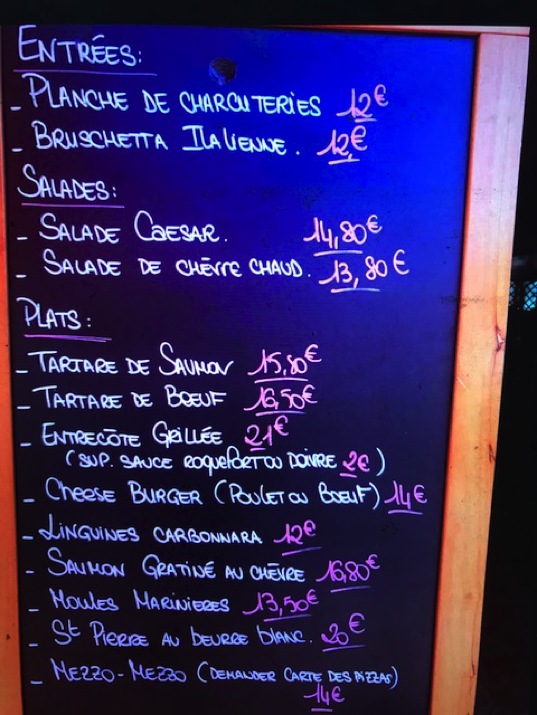 ENTRÉES:
- PLANCHE DE CHARCUTERIES 12€
- BRUSCHETTA ITALIENNE. 12,€
SALADES:
- SALADE CAESAR. 14,80€
- SALADE DE CHÈVRE CHAUD. 13,80€
PLATS:
- TARTARE DE SAUMON 15,80€
- TARTARE DE BOEUF 16,50€
- ENTRECÔTE GRILLÉE 21€
(SUP. SAUCE ROQUEFORT OU POIVRE 2€)
- CHEESE BURGER (POULET OU BOEUF) 14€
- LINGUINES CARBONNARA 12€
- SAUMON GRATINÉ AU CHÈVRE 16,80€
- MOULES MARINIERES 13,50€
- St PIERRE AU BEURRE BLANC. 20€
- MEZZO-MEZZO (DEMANDER CARTE DES PIZZAS)
14€